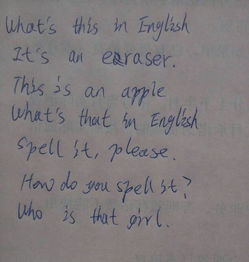 What's this in English
It's an eraser.
This is an apple
What's that in English
Spell it, please.
How do you spell it?
Who is that girl.